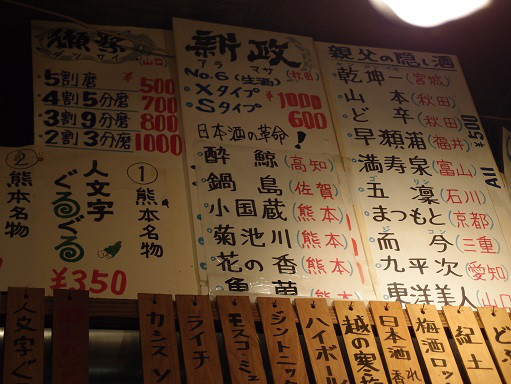 獺祭(山口)
ダッサイ
5割磨 ¥500
4割5分磨 700
3割9分磨 800
2割3分磨 1000
①熊本名物
人文字
ぐるぐる
¥350
②熊本名物
新政
アラマサ
No.6(生酒)(秋田)
Xタイプ ¥1000
Sタイプ 600
日本酒の革命!
酔鯨(高知)
鍋島(佐賀)
小国蔵(熊本)
菊池川(熊本)
花の香(熊本)
親父の隠し酒
All ¥500
乾坤一(宮城)
山本(秋田)
ど辛(秋田)
早瀬浦(福井)
満寿泉(富山)
五凛(石川)
まつもと(京都)
而今(三重)
ジコン
九平次(愛知)
東洋美人(山口)
人文字ぐ
カシスソ
ライチ
モスコミュ
ジントニック
ハイボール
越の寒
日本酒
梅酒ロッ
紀土